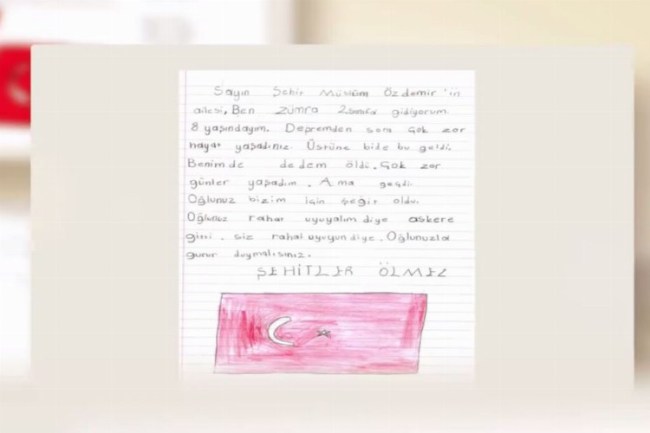 Sayın Şehir Müslüm Özdemir'in
ailesi, Ben Zümra 2.sınıfa gidiyorum
8 yaşındayım. Depremden sora çok zor
hayat yaşadınız. Üstüne bide bu geldi.
Benimde dedem öldi. Çok zor
günler yaşadım. Ama geçdi.
Oğlunuz bizim için şeğit oldu.
Oğlunuz rahat uyuyalım diye askere
gitti, siz rahat uyuyun diye. Oğlunuzla
gurur duymalısınız.
ŞEHİTLER ÖLMEZ